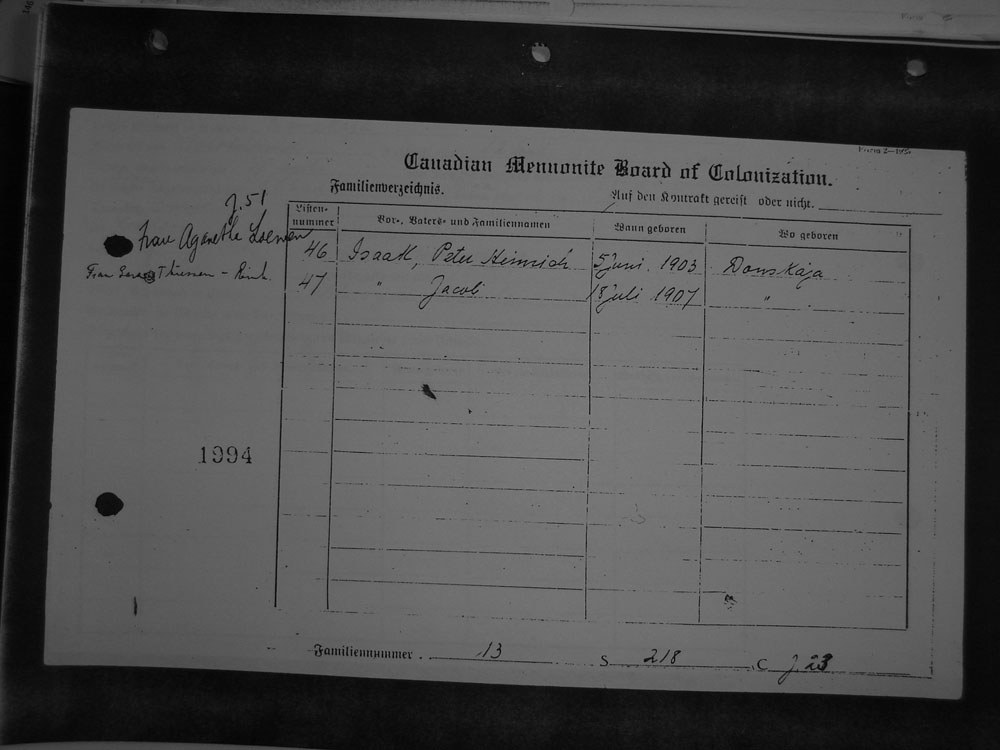 Canadian Mennonite Board of Colonization.
Familienverzeichnis.
Auf den Kontrakt gereist oder nicht.
J. 51
Frau Agarethe Loewen
Frau Thiessen -
Listen-nummer Vor-, Vaters- und Familiennamen Wann geboren Wo geboren
46 Isaak, Peter Heinrich 5 Juni. 1903 Donskaja
47 " Jacob 18 Juli 1907 "
1994
Familiennummer. 13 S 218 C J 23